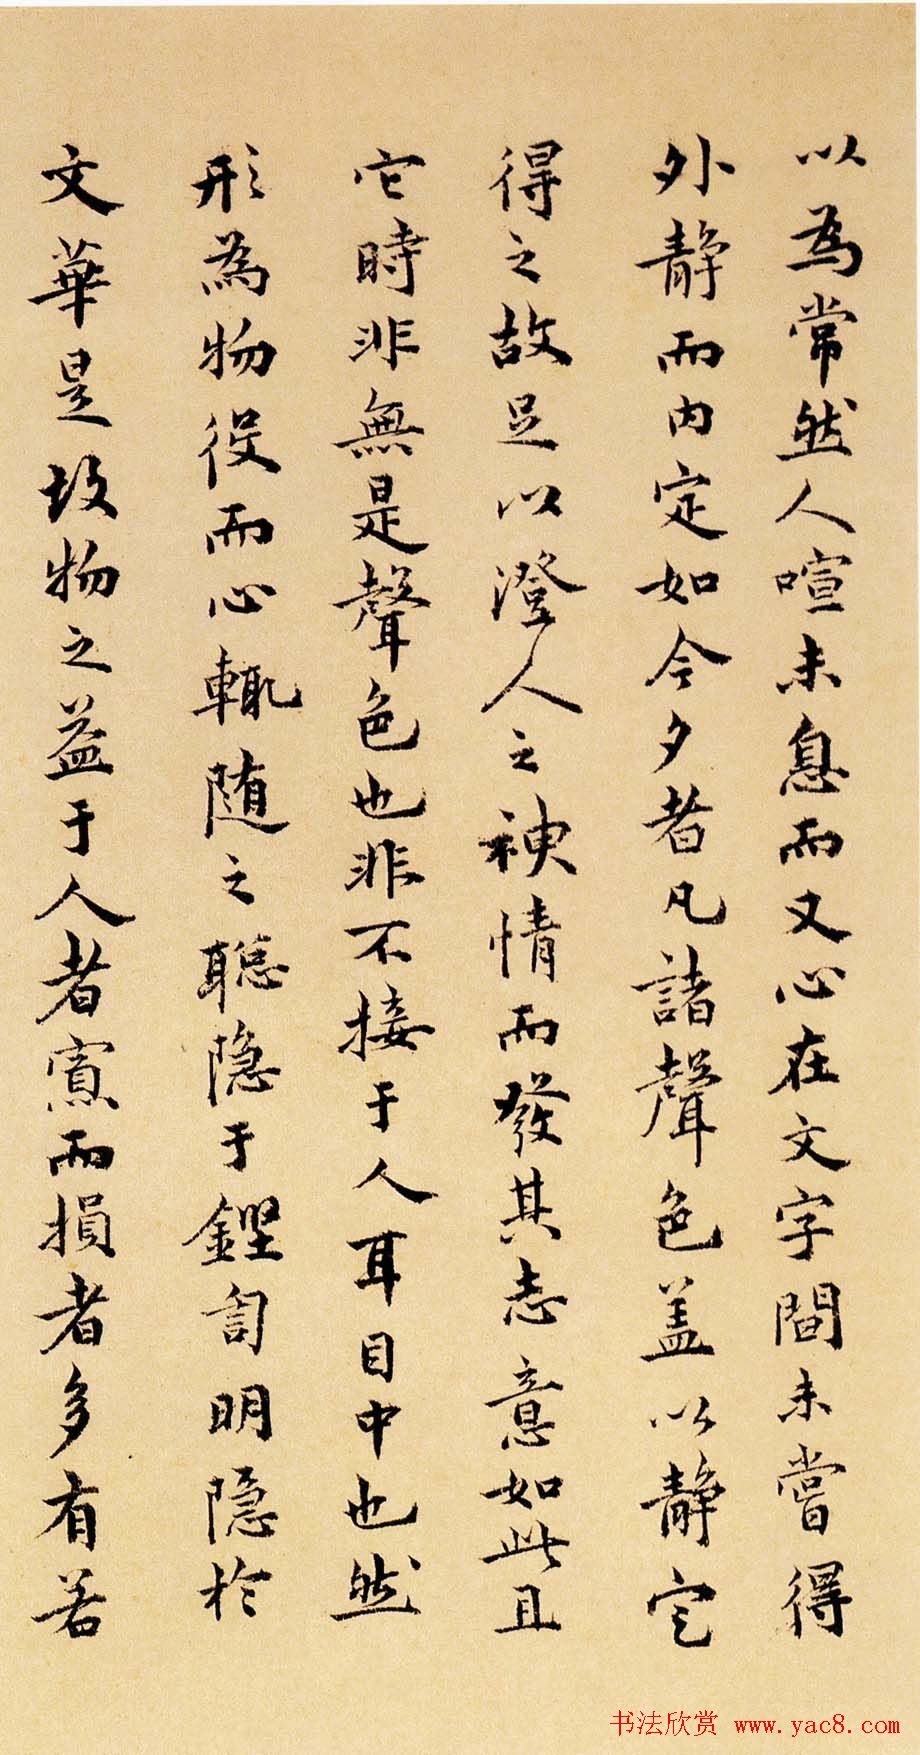 以為常然人喧未息而又心在文字間未嘗得
外静而内定如今夕者凡諸聲色盖以静定
得之故足以澄人之神情而發其志意如此且
它時非無是聲色也非不接于人耳目中也然
形為物役而心輒随之聡隐于鏗訇明隐於
文華是故物之益于人者寡而損者多有若
书法欣赏 www.yac8.com